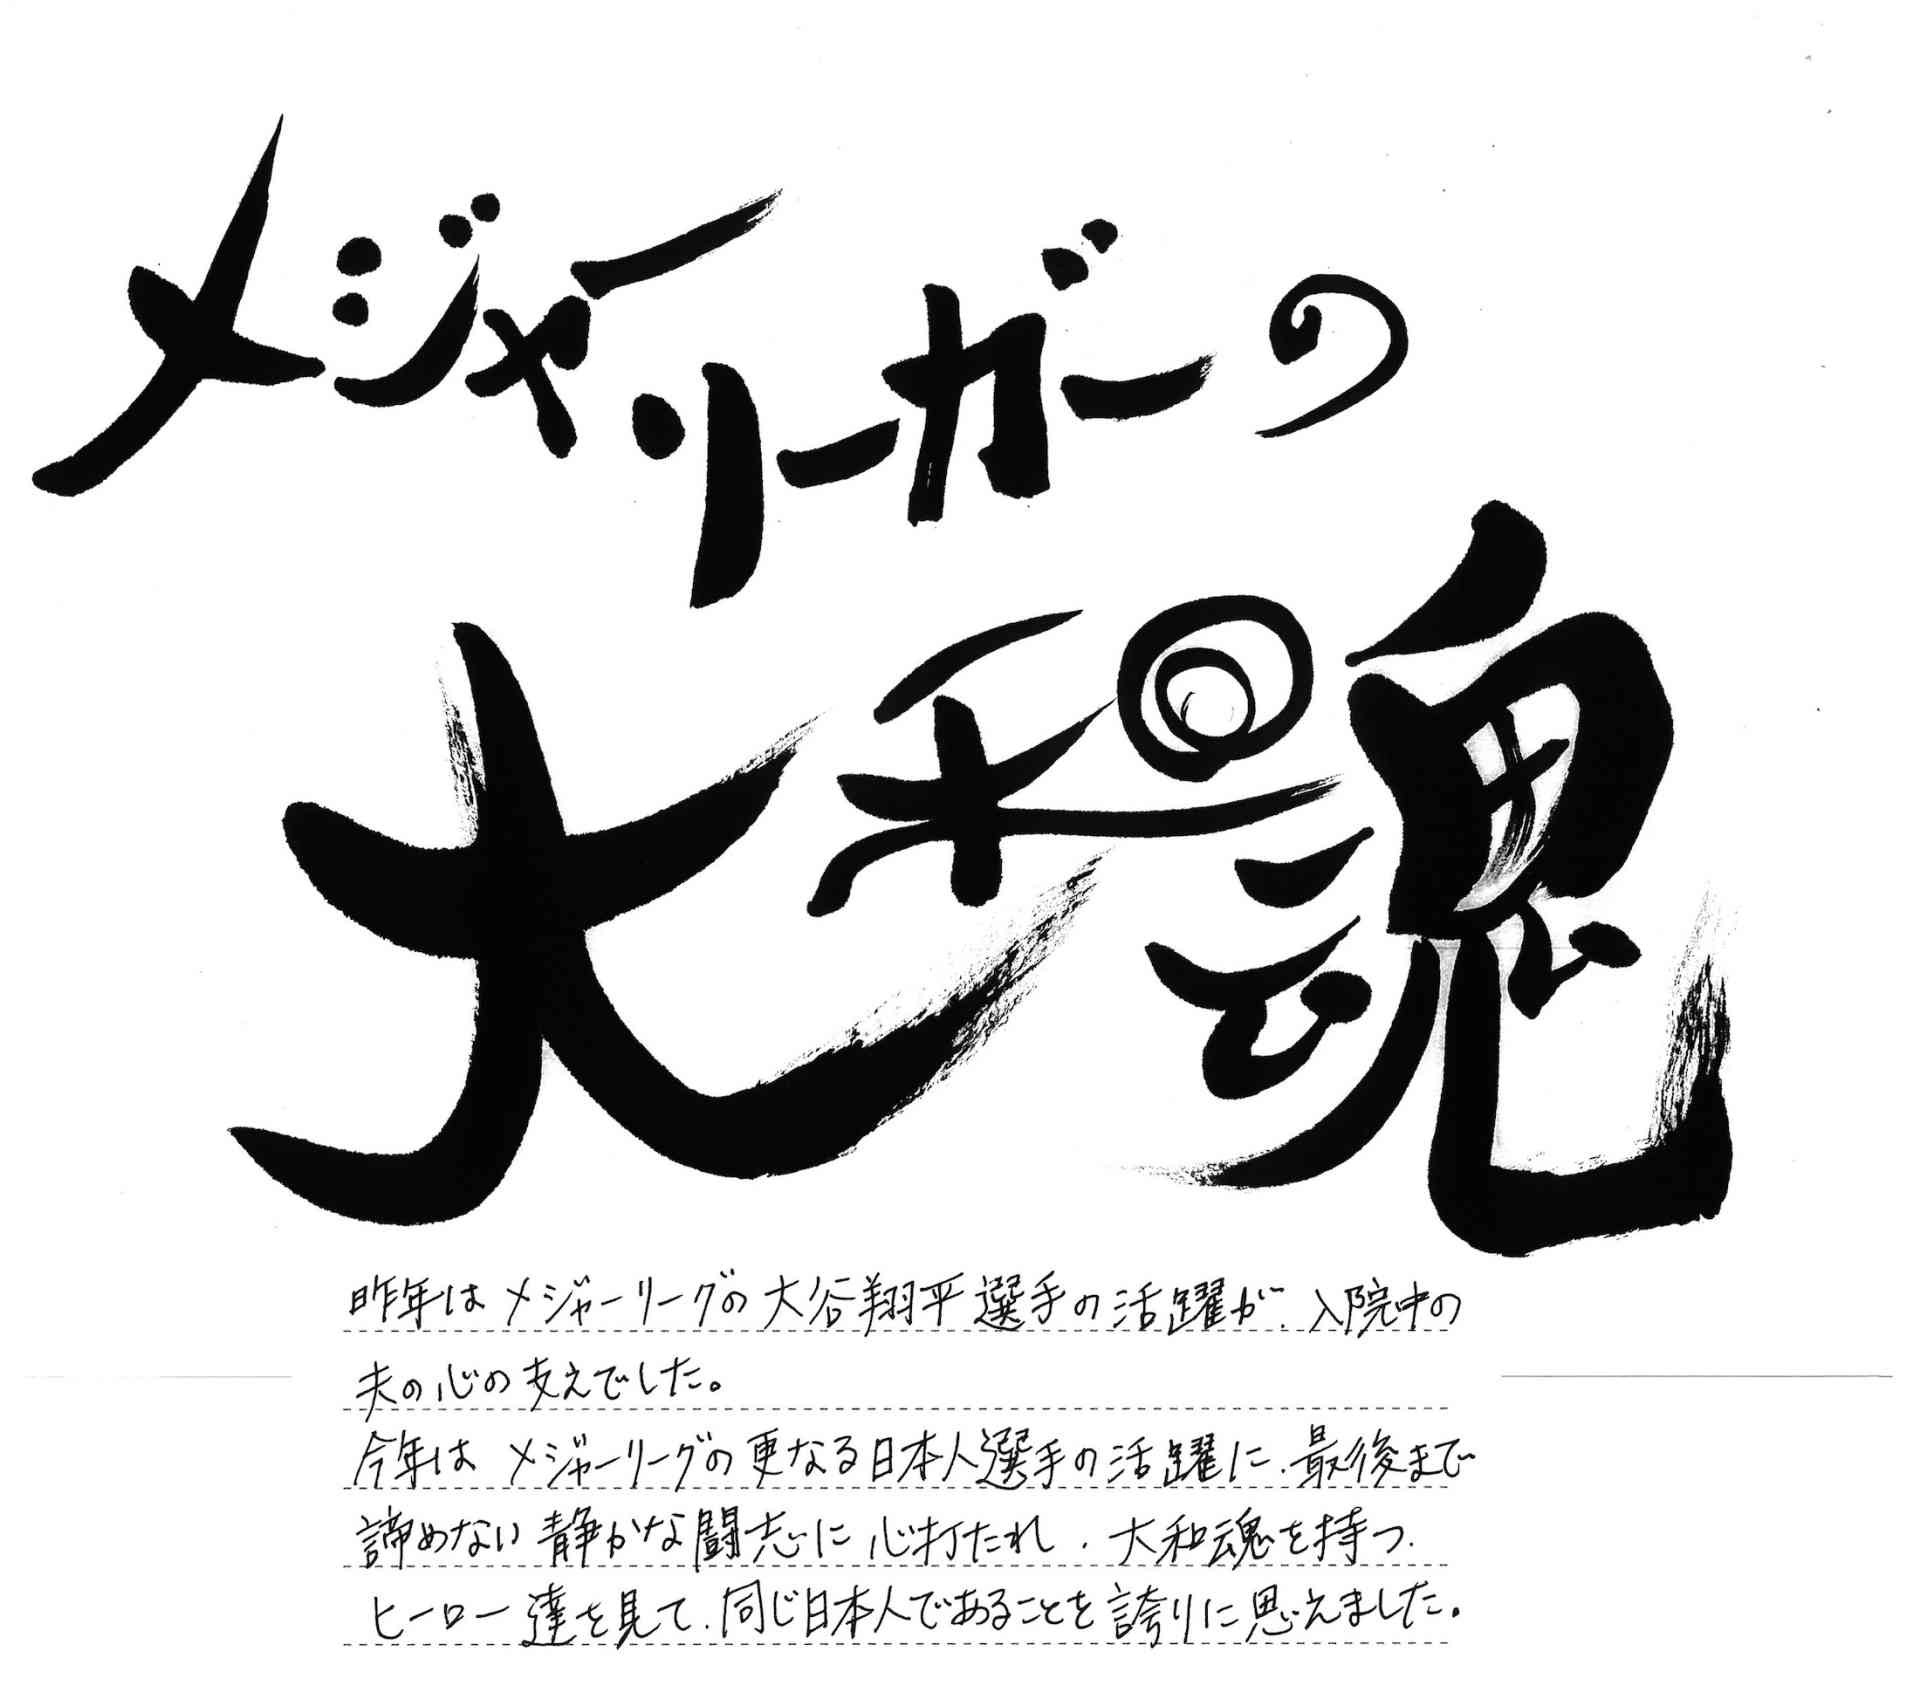 メジャーリーガーの
大和魂
昨年はメジャーリーグの大谷翔平選手の活躍が、入院中の
夫の心の支えでした。
今年はメジャーリーグの更なる日本人選手の活躍に、最後まで
諦めない静かな闘志に心打たれ、大和魂を持つ、
ヒーロー達を見て、同じ日本人であることを誇りに思えました。